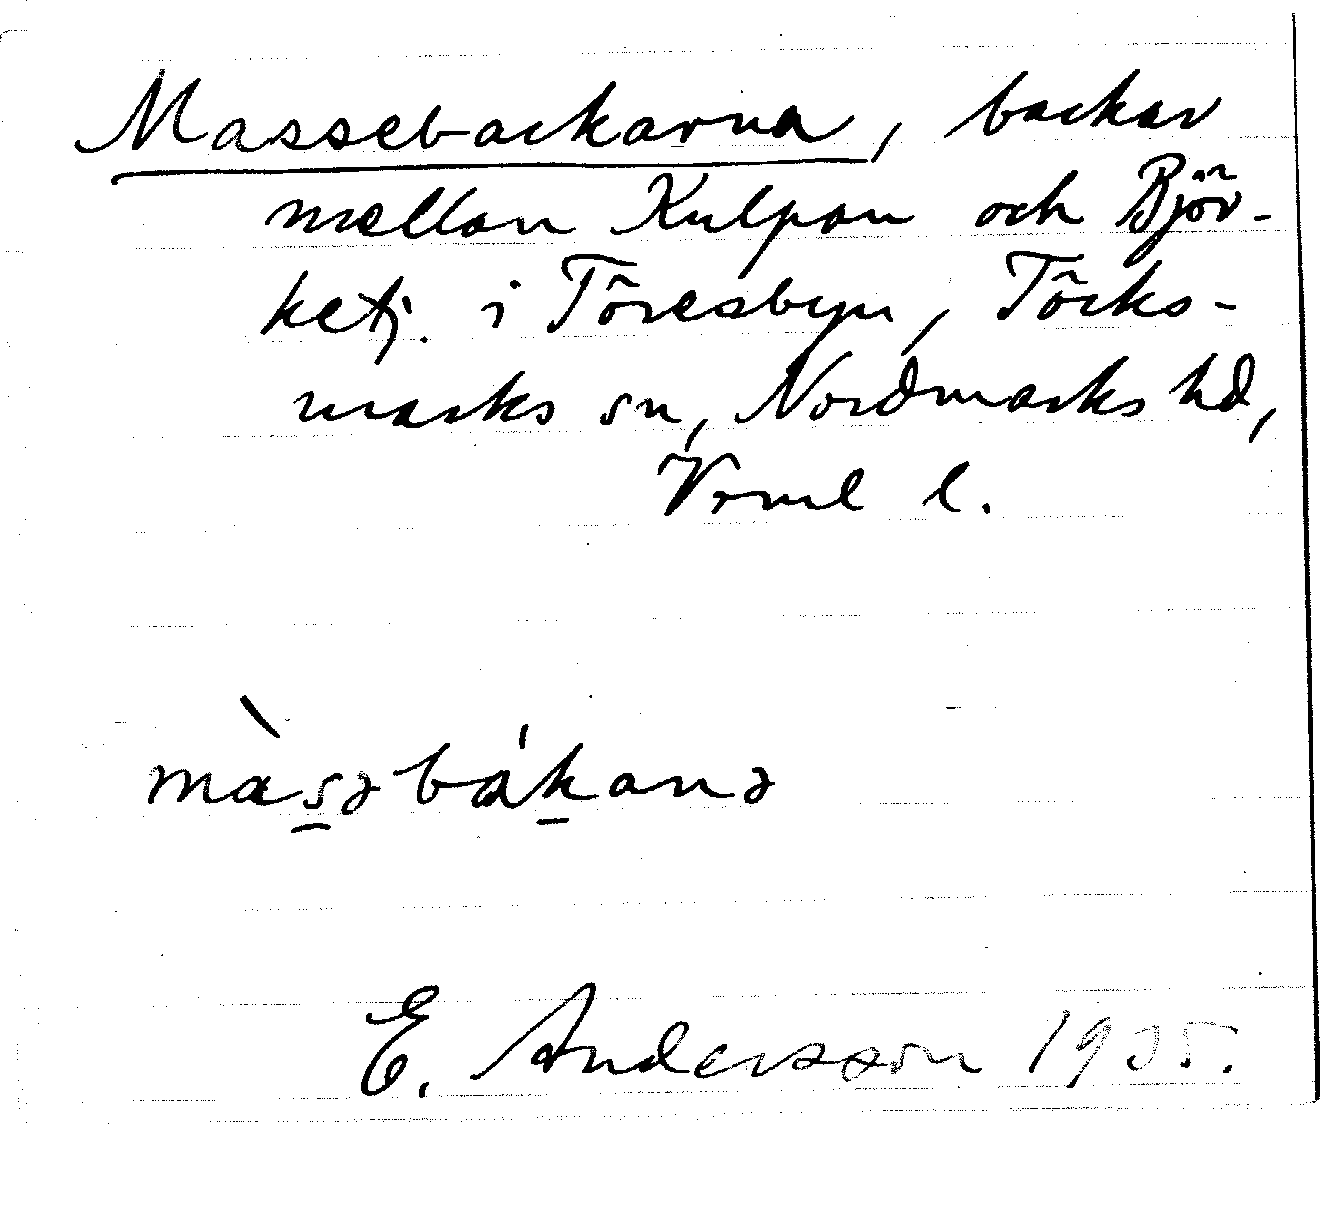 Massebackarna, backar
mellan Kulpan och Björ-
ketj. i Töresbyn, Töcks-
marks sn, Nordmarks hd,
Vrml l.
màsəbákanə
E. Andersson 1935.